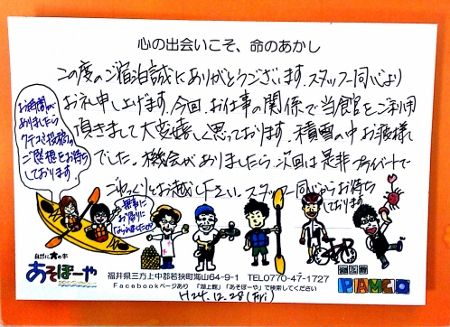 心の出会いこそ、命のあかし
この度のご宿泊誠にありがとうございます。スタッフ一同心より
お礼申し上げます。今回、お仕事の関係で当館をご利用
頂きまして大変嬉しく思っております。積雪の中お疲れ様
でした。機会がありましたら、次回は是非プライベートで
ごゆっくりとお越し下さい。スタッフ一同心からお待ち
しております
お時間が
ありましたら
クチコミ投稿の
ご感想をお待ち
しております。
無事に
お帰りに
なられましたか
あそぼーや
福井県三方上中郡若狭町海山64-9-1 TEL0770-47-1727
Facebookページあり 「湖上館」「あそぼーや」で検索してください
湖上館
PAMCO
H24.12.28(Fri)